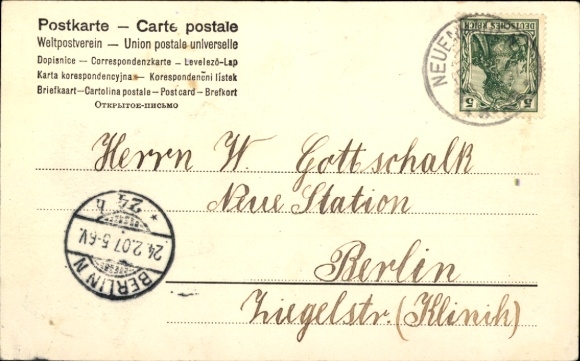 Postkarte – Carte postale
Weltpostverein – Union postale universelle
Dopisnice – Correspondenzkarte – Levelező-Lap
Karta korespondencyjna – Korespondenční lístek
Briefkaart – Cartolina postale – Postcard – Brefkort
Открытое-письмо
NEUEN
DEUTSCHES REICH
5 5
Herrn W. Gottschalk
Neue Station
Berlin
Ziegelstr. (Klinik)
BERLIN N
24.2.07.5-6V.
* 24 h